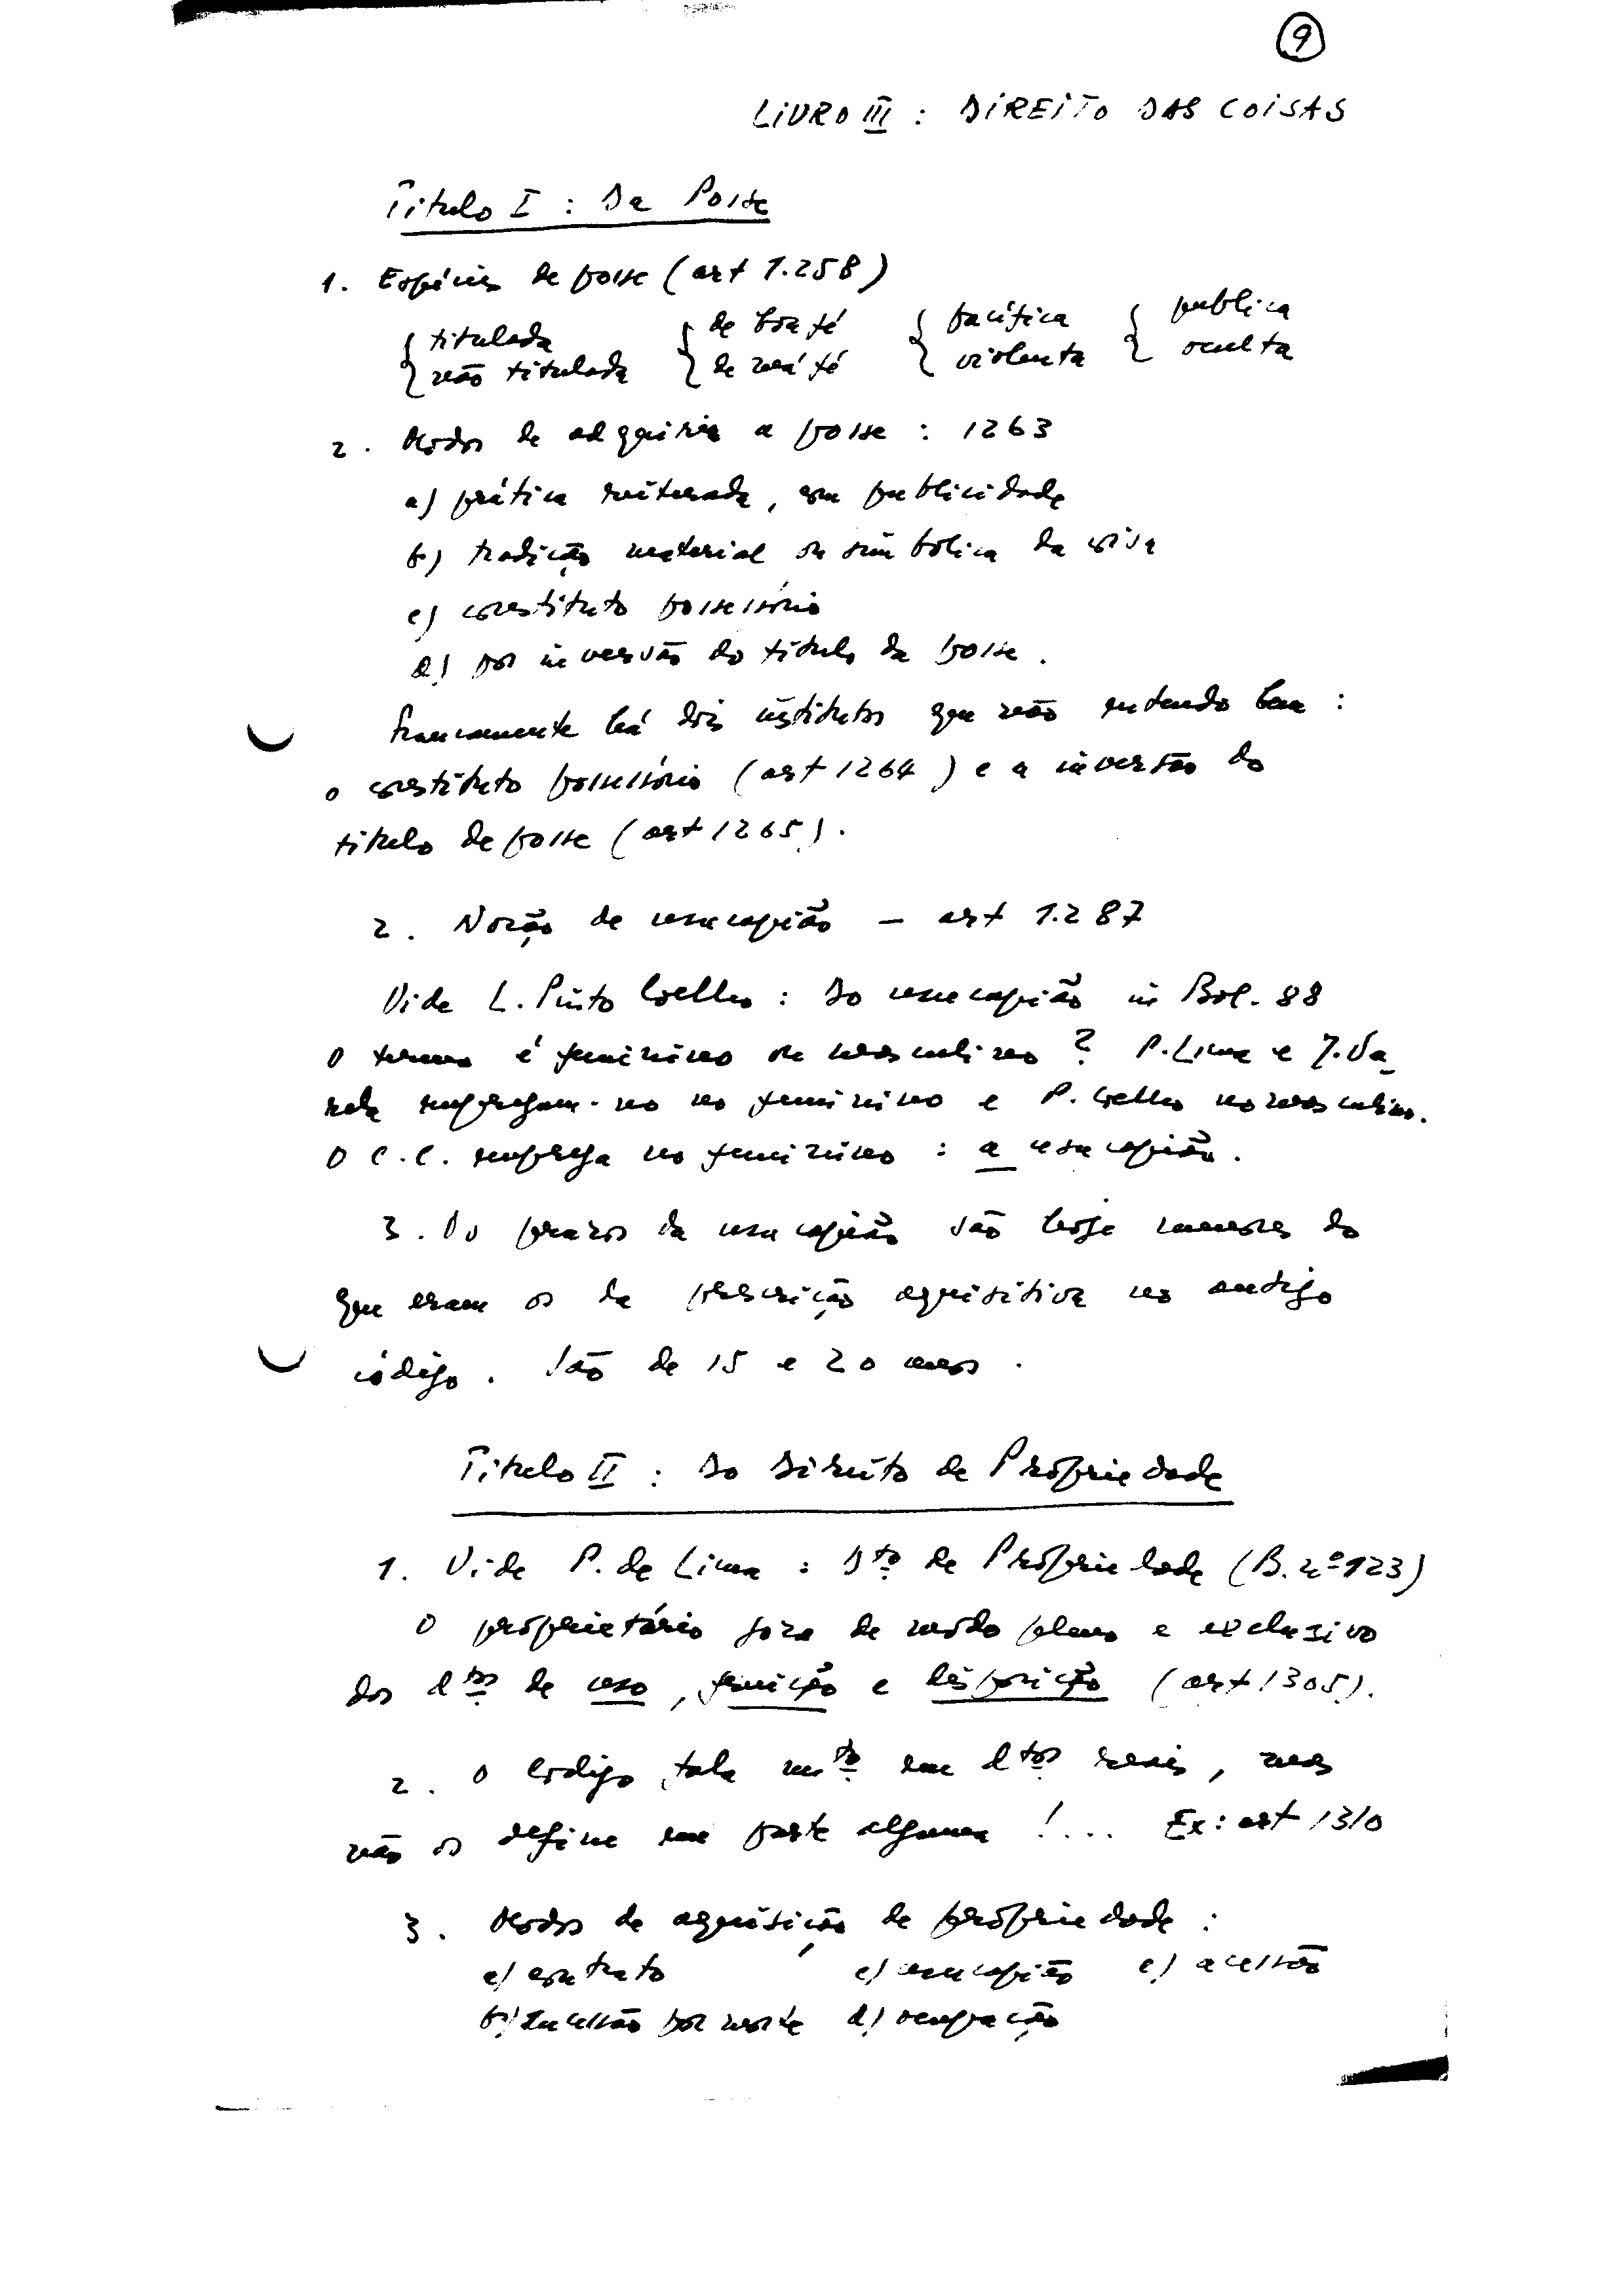 9
LIVRO III : DIREITO DAS COISAS
Titulo I : Da Posse
1. Espécies de posse (art 1.258)
{ titulada { de boa fé { pacífica { publica
{ não titulada { de má fé { violenta { oculta
2. Modos de adquirir a posse : 1263
a) prática reiterada, com publicidade
b) tradição material ou simbólica da coisa
c) constituto possessório
d) por inversão do título da posse.
Francamente há dois institutos que não entendo bem :
o constituto possessório (art 1264) e a inversão do
título de posse (art 1265).
2. Noção de usucapião – art 1.287
Vide L. Pinto Coelho : Do usucapião in Bol. 88
O termo é feminino ou masculino ? P. Lima e J. Va-
rela empregam-no no feminino e P. Coelho no masculino.
O C.C. emprega no feminino : a usucapião.
3. Os prazos da usucapião são hoje menores do
que eram os da prescrição aquisitiva no antigo
código. São de 15 e 20 anos.
Titulo II : Do Direito de Propriedade
1. Vide P. de Lima : Dto de Propriedade (B. nº 123)
O proprietário goza de modo pleno e exclusivo
dos dtos de uso, fruição e disposição (art 1305).
2. O Código fala mto em dtos reais, mas
não os define em parte alguma !... Ex: art 1310
3. Modos de aquisição de propriedade :
a) contrato c) usucapião e) acessão
b) sucessão por morte d) ocupação